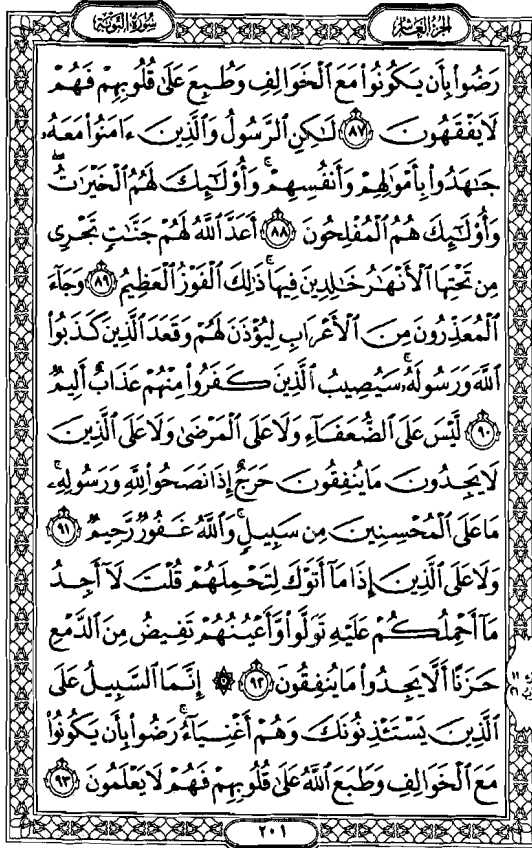 سُورَةُ التَّوْبَةِ الجُزْءُ العَاشِرُ
رَضُوا۟ بِأَن يَكُونُوا۟ مَعَ ٱلْخَوَالِفِ وَطُبِعَ عَلَىٰ قُلُوبِهِمْ فَهُمْ
لَا يَفْقَهُونَ ٨٧ لَـٰكِنِ ٱلرَّسُولُ وَٱلَّذِينَ ءَامَنُوا۟ مَعَهُۥ
جَـٰهَدُوا۟ بِأَمْوَٰلِهِمْ وَأَنفُسِهِمْ ۚ وَأُو۟لَـٰٓئِكَ لَهُمُ ٱلْخَيْرَٰتُ ۖ
وَأُو۟لَـٰٓئِكَ هُمُ ٱلْمُفْلِحُونَ ٨٨ أَعَدَّ ٱللَّهُ لَهُمْ جَنَّـٰتٍ تَجْرِى
مِن تَحْتِهَا ٱلْأَنْهَـٰرُ خَـٰلِدِينَ فِيهَا ۚ ذَٰلِكَ ٱلْفَوْزُ ٱلْعَظِيمُ ٨٩ وَجَآءَ
ٱلْمُعَذِّرُونَ مِنَ ٱلْأَعْرَابِ لِيُؤْذَنَ لَهُمْ وَقَعَدَ ٱلَّذِينَ كَذَبُوا۟
ٱللَّهَ وَرَسُولَهُۥ ۚ سَيُصِيبُ ٱلَّذِينَ كَفَرُوا۟ مِنْهُمْ عَذَابٌ أَلِيمٌ
٩٠ لَّيْسَ عَلَى ٱلضُّعَفَآءِ وَلَا عَلَى ٱلْمَرْضَىٰ وَلَا عَلَى ٱلَّذِينَ
لَا يَجِدُونَ مَا يُنفِقُونَ حَرَجٌ إِذَا نَصَحُوا۟ لِلَّهِ وَرَسُولِهِۦ ۚ
مَا عَلَى ٱلْمُحْسِنِينَ مِن سَبِيلٍ ۚ وَٱللَّهُ غَفُورٌ رَّحِيمٌ ٩١
وَلَا عَلَى ٱلَّذِينَ إِذَا مَآ أَتَوْكَ لِتَحْمِلَهُمْ قُلْتَ لَآ أَجِدُ
مَآ أَحْمِلُكُمْ عَلَيْهِ تَوَلَّوا۟ وَّأَعْيُنُهُمْ تَفِيضُ مِنَ ٱلدَّمْعِ
حَزَنًا أَلَّا يَجِدُوا۟ مَا يُنفِقُونَ ٩٢ ۞ إِنَّمَا ٱلسَّبِيلُ عَلَى
ٱلَّذِينَ يَسْتَـْٔذِنُونَكَ وَهُمْ أَغْنِيَآءُ ۚ رَضُوا۟ بِأَن يَكُونُوا۟
مَعَ ٱلْخَوَالِفِ وَطَبَعَ ٱللَّهُ عَلَىٰ قُلُوبِهِمْ فَهُمْ لَا يَعْلَمُونَ ٩٣
٢٠١